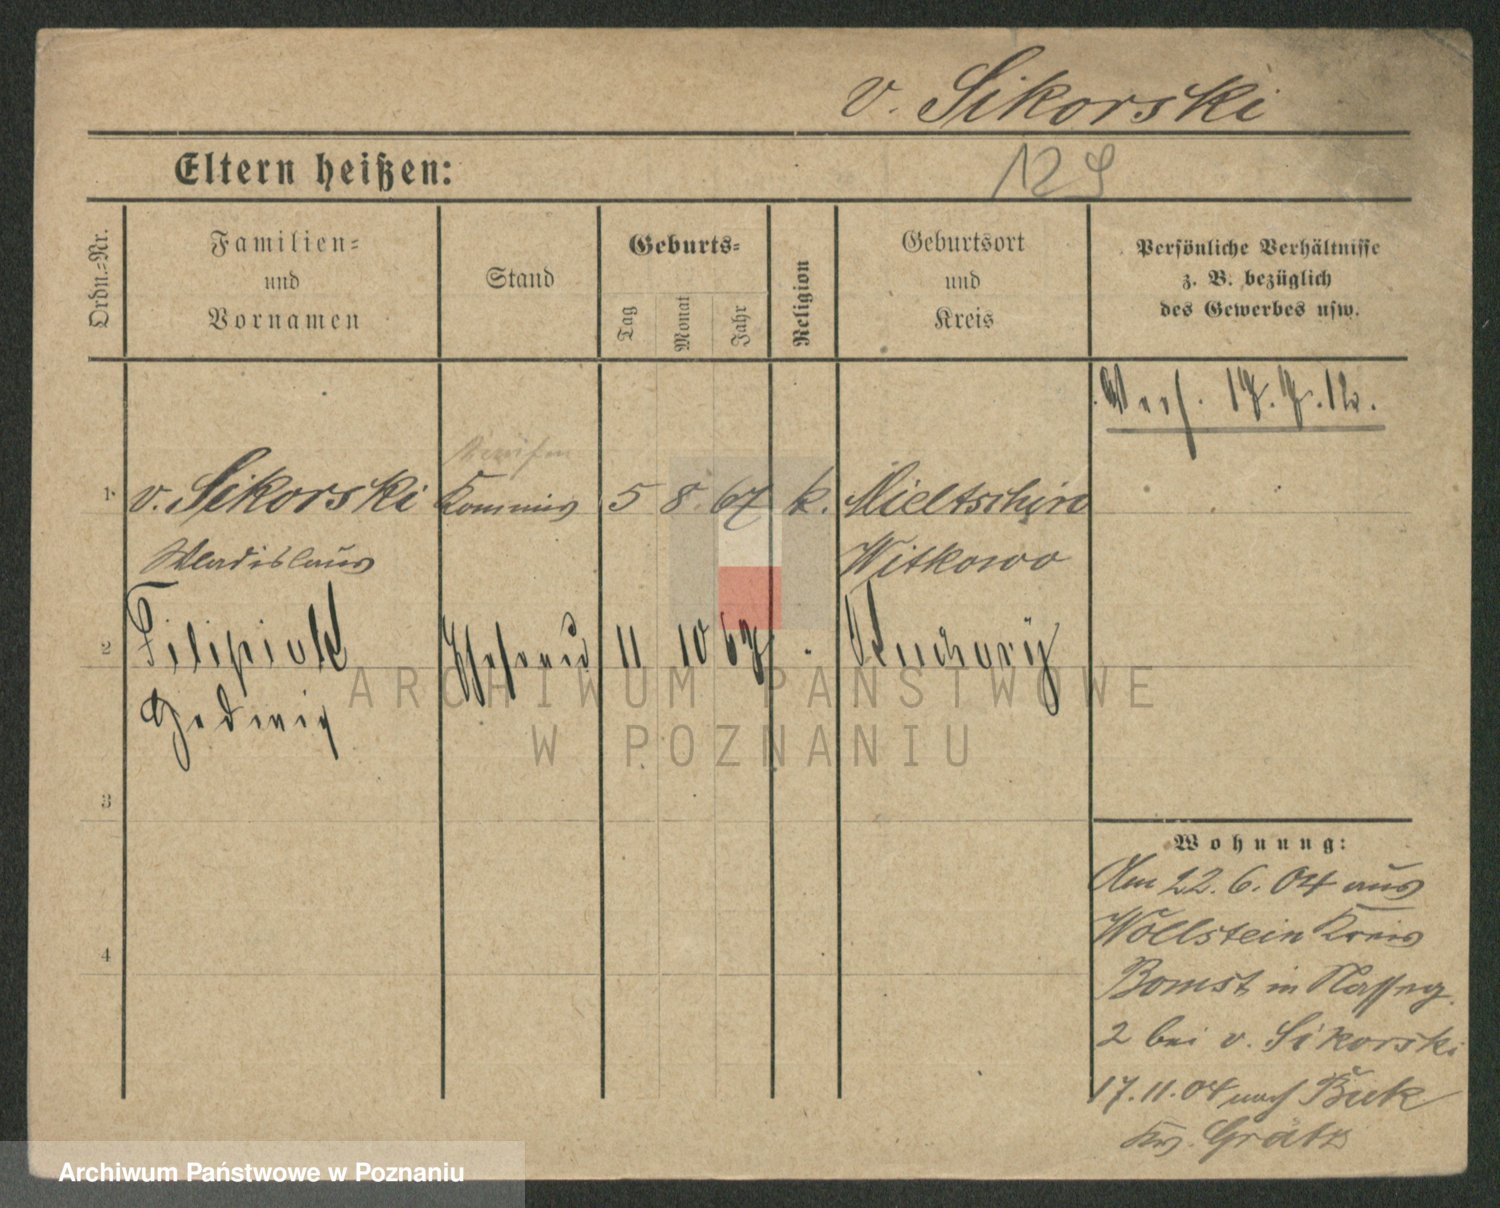 v. Sikorski
Eltern heißen:
129
Ordn.-Nr.
Familien-
und
Vornamen
Stand
Geburts-
Tag
Monat
Jahr
Religion
Geburtsort
und
Kreis
Persönliche Verhältnisse
z. B. bezüglich
des Gewerbes usw.
Verh. 17. 7. 12.
1 v. Sikorski Kommis 5 8 67 k. Mieltschin
Wladislaus Witkowo
2 Filipiak Ehefrau 11 10 67 Kuchary
Hedwig
3
4
Wohnung:
Am 22. 6. 04 aus
Wollstein Kreis
Bomst in Nasseg.
2 bei v. Sikorski
17. 11. 04 nach Buk
Krs. Grätz
ARCHIWUM PAŃSTWOWE
W POZNANIU
Archiwum Państwowe w Poznaniu